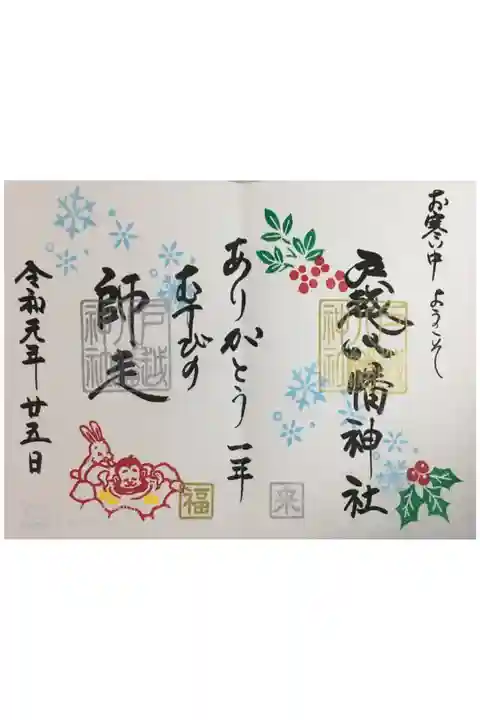 お寒い中 ようこそ
戸越八幡神社
戸越八幡神社
来
ありがとう 一年
むすびの
師走
戸越八幡神社
福
令和元年 廿五日